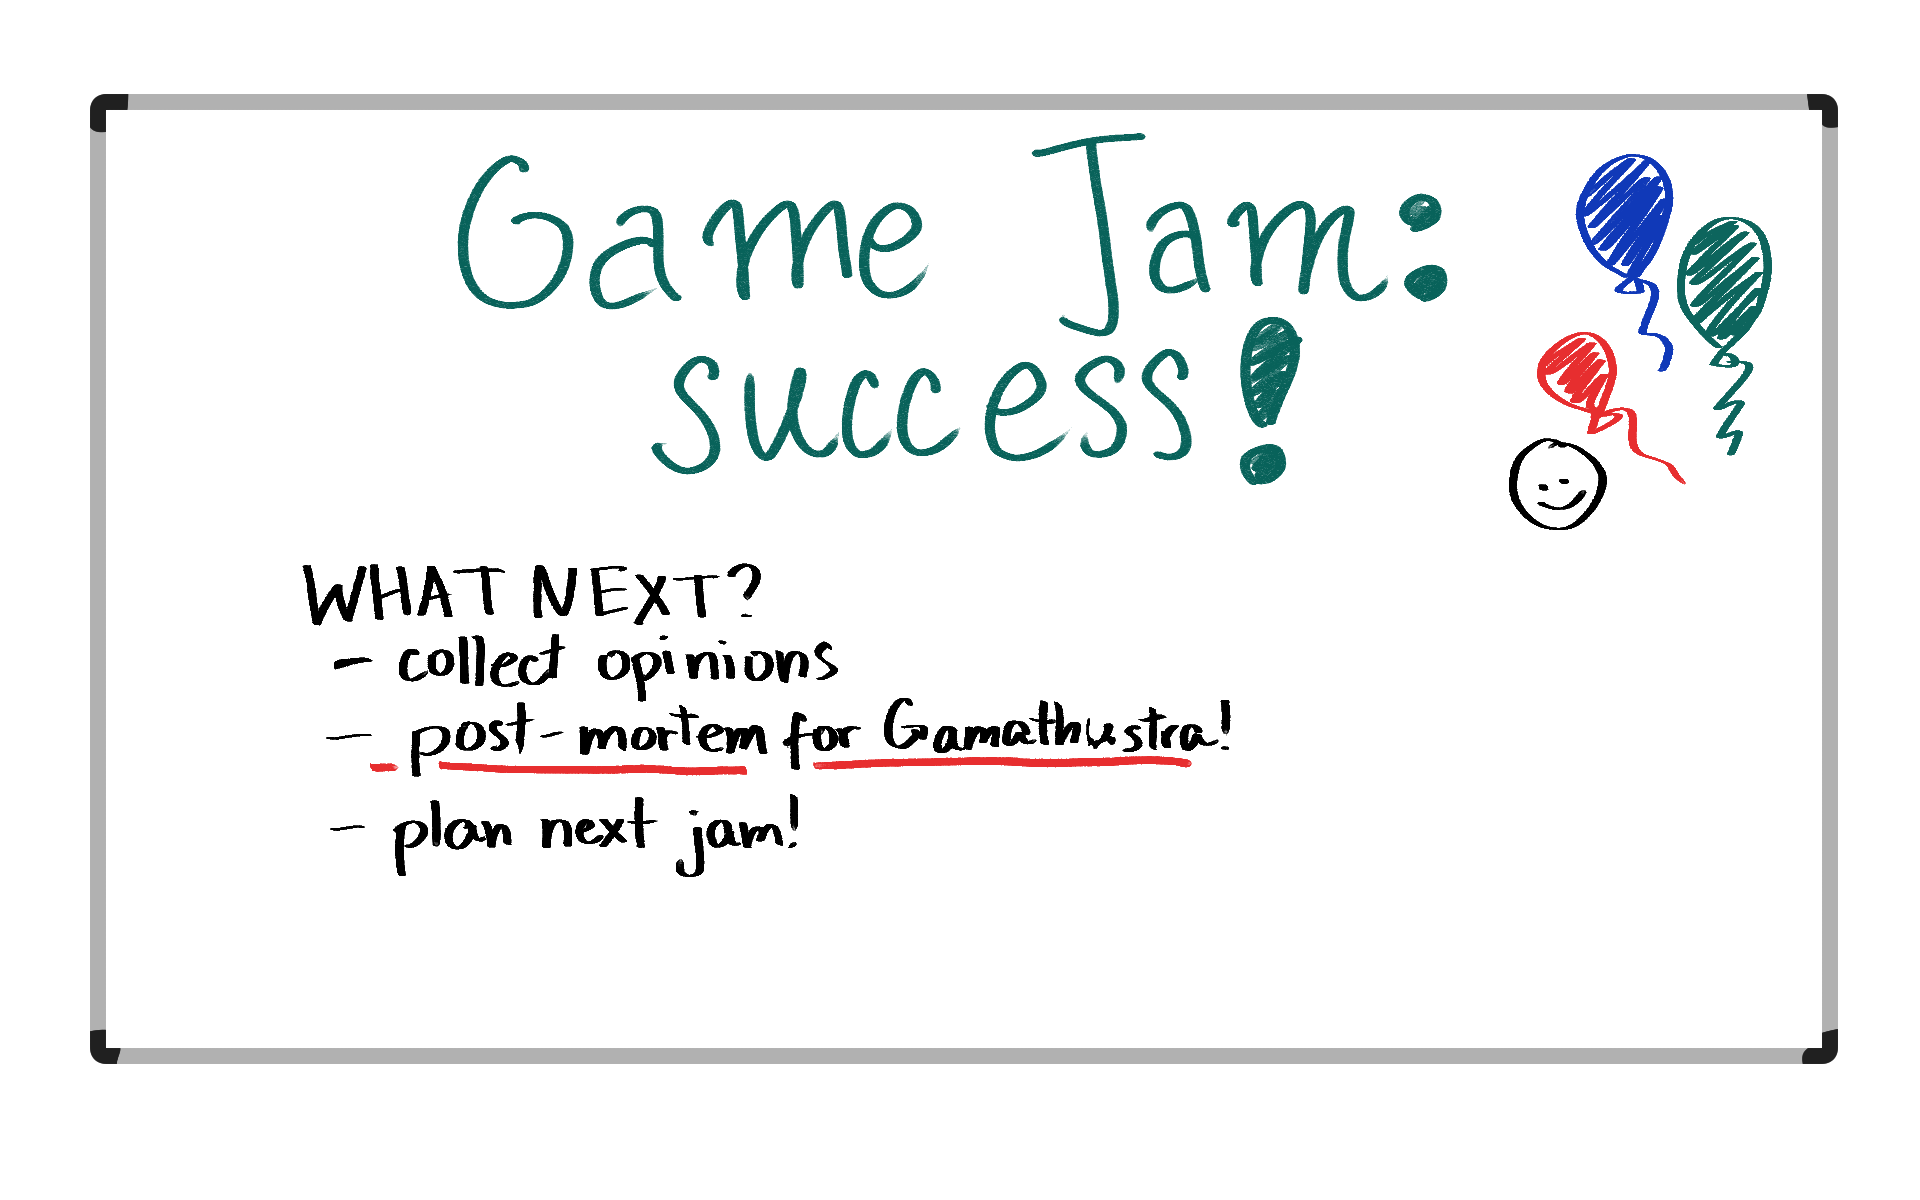 Game Jam:
success!
WHAT NEXT?
- collect opinions
- post-mortem for Gamathustra!
- plan next jam!